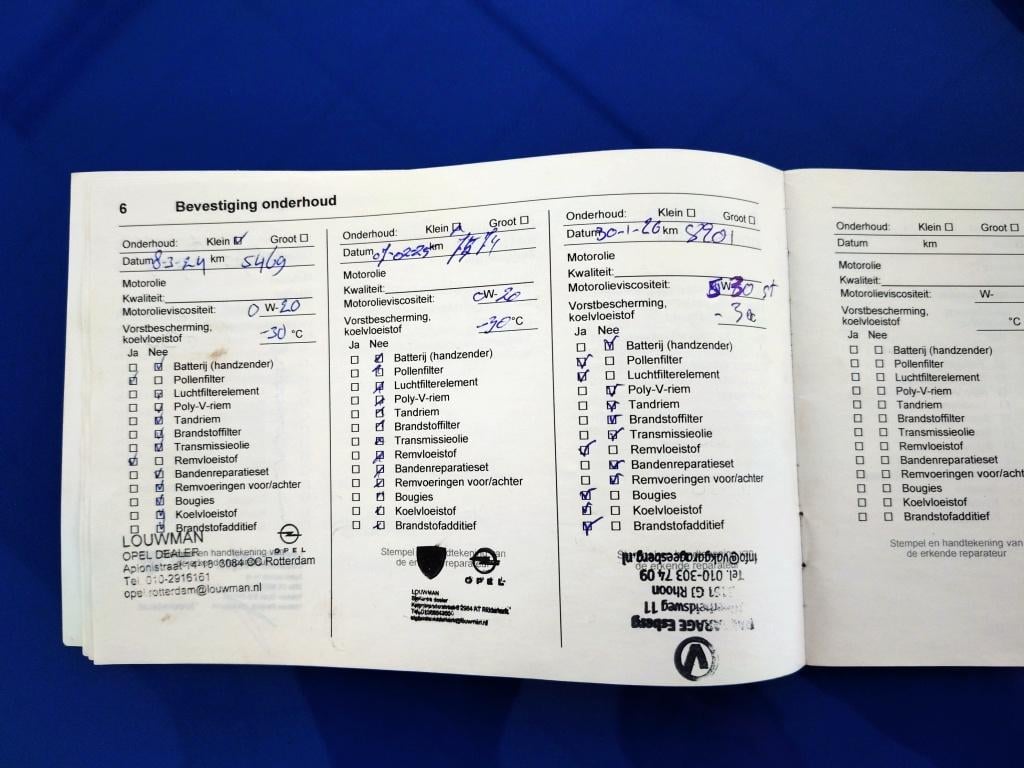 6 Bevestiging onderhoud
Onderhoud: Klein Groot
Datum 8-3-24 km 5469
Motorolie
Kwaliteit:
Motorolieviscositeit: 0 W-20
Vorstbescherming,
koelvloeistof -30 °C
Ja Nee
Batterij (handzender)
Pollenfilter
Luchtfilterelement
Poly-V-riem
Tandriem
Brandstoffilter
Transmissieolie
Remvloeistof
Bandenreparatieset
Remvoeringen voor/achter
Bougies
Koelvloeistof
Brandstofadditief
Stempel en handtekening van
LOUWMAN
OPEL DEALER
OPEL
3084 CC Rotterdam
Tel. 010-2916161
opel.rotterdam@louwman.nl
Onderhoud: Klein Groot
Datum km
Motorolie
Kwaliteit:
Motorolieviscositeit: 0W-20
Vorstbescherming,
koelvloeistof -30 °C
Ja Nee
Batterij (handzender)
Pollenfilter
Luchtfilterelement
Poly-V-riem
Tandriem
Brandstoffilter
Transmissieolie
Remvloeistof
Bandenreparatieset
Remvoeringen voor/achter
Bougies
Koelvloeistof
Brandstofadditief
Stempel en handtekening van
OPEL
LOUWMAN
Onderhoud: Klein Groot
Datum 30-1-26 km 8901
Motorolie
Kwaliteit:
Motorolieviscositeit: 5 W-30
Vorstbescherming,
koelvloeistof
Ja Nee
Batterij (handzender)
Pollenfilter
Luchtfilterelement
Poly-V-riem
Tandriem
Brandstoffilter
Transmissieolie
Remvloeistof
Bandenreparatieset
Remvoeringen voor/achter
Bougies
Koelvloeistof
Brandstofadditief
de erkende reparateur
info@vakgarageesberg.nl
Tel. 010-303 74 09
3161 GJ Rhoon
11
VAKGARAGE Esberg
Onderhoud: Klein Groot
Datum km
Motorolie
Kwaliteit:
Motorolieviscositeit: W-
Vorstbescherming,
koelvloeistof °C
Ja Nee
Batterij (handzender)
Pollenfilter
Luchtfilterelement
Poly-V-riem
Tandriem
Brandstoffilter
Transmissieolie
Remvloeistof
Bandenreparatieset
Remvoeringen voor/achter
Bougies
Koelvloeistof
Brandstofadditief
Stempel en handtekening van
de erkende reparateur